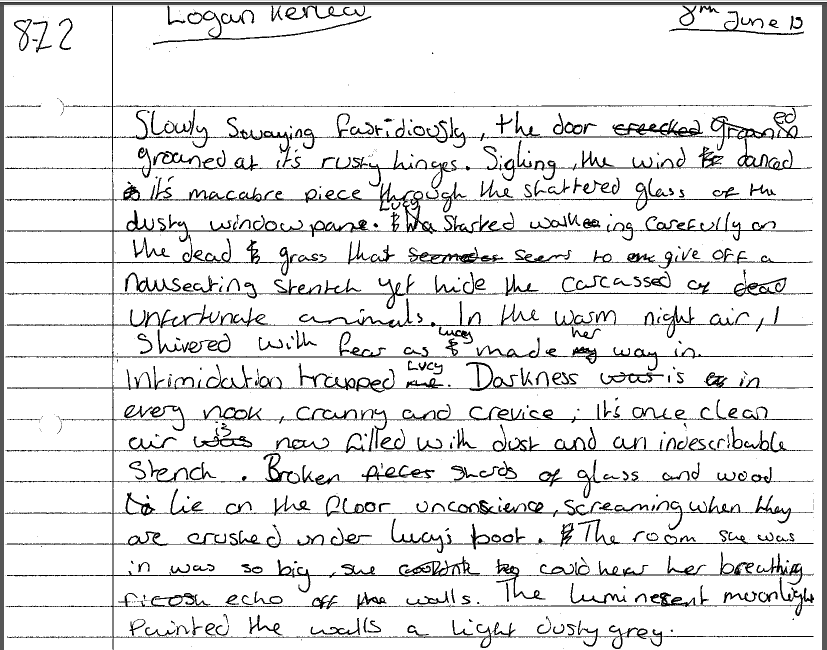 Logan Kerlew
8th June 15
872
Slowly Swaying fastidiously, the door creecked groanined
groaned at it's rusty hinges. Sighing, the wind danced
it's macabre piece through the shattered glass of the
dusty window pane. Lucy started walkeing carefully on
the dead grass that seemedes seems to give off a
nauseating stentch yet hide the carcassed of dead
unfortunate animals. In the warm night air, I
shivered with fear as Lucey made my her way in.
Intimidation trapped me Lucy. Darkness was is in
every nook, cranny and crevice; it's once clean
air was is now filled with dust and an indescribable
stench. Broken pieces shards of glass and wood
lie on the floor unconscience, screaming when they
are crushed under Lucy's boot. The room she was
in was so big, she couldnt could hear her breathing
echo off the walls. The luminescent moonlight
Painted the walls a light dusty grey.